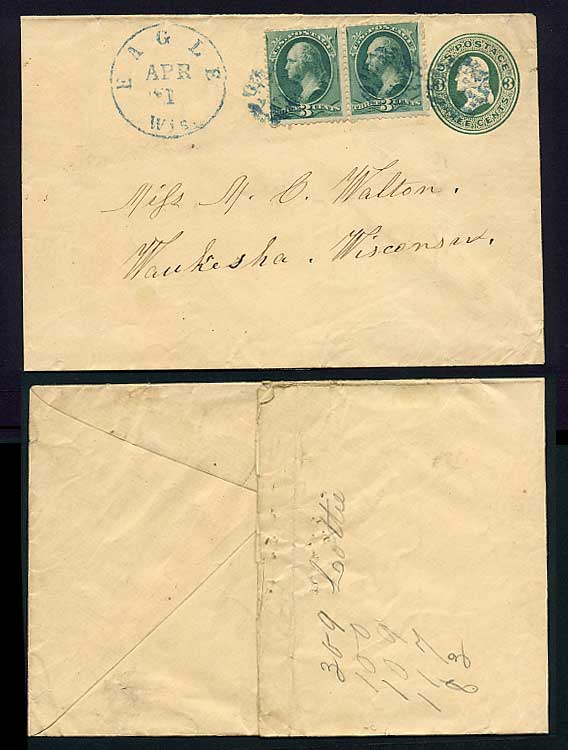 EAGLE
APR
1
Wis.
U.S. POSTAGE
THREE 3 CENTS
THREE 3 CENTS
U.S. POSTAGE
3 3
THREE CENTS
Miss M. C. Walton.
Waukesha. Wisconsin.
309 Lottie
100
109
117
63